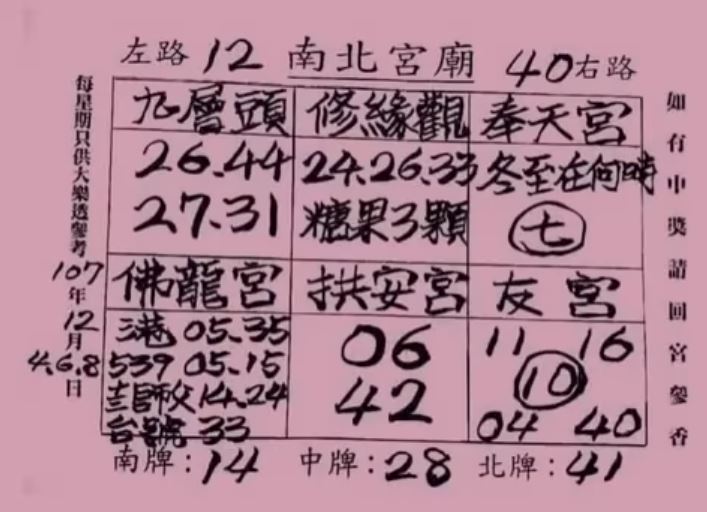 左路 12 南北宮廟 40 右路
每星期只供大樂透參考
107年
12月
4.6.8日
九層頭
26.44
27.31
修緣觀
24.26.33
糖果3顆
奉天宮
冬至在何時
七
佛龍宮
三港 05.35
539 05.15
師父 14.24
台號 33
拱安宮
06
42
友宮
11 16
10
04 40
如有中獎請回宮參香
南牌：14 中牌：28 北牌：41